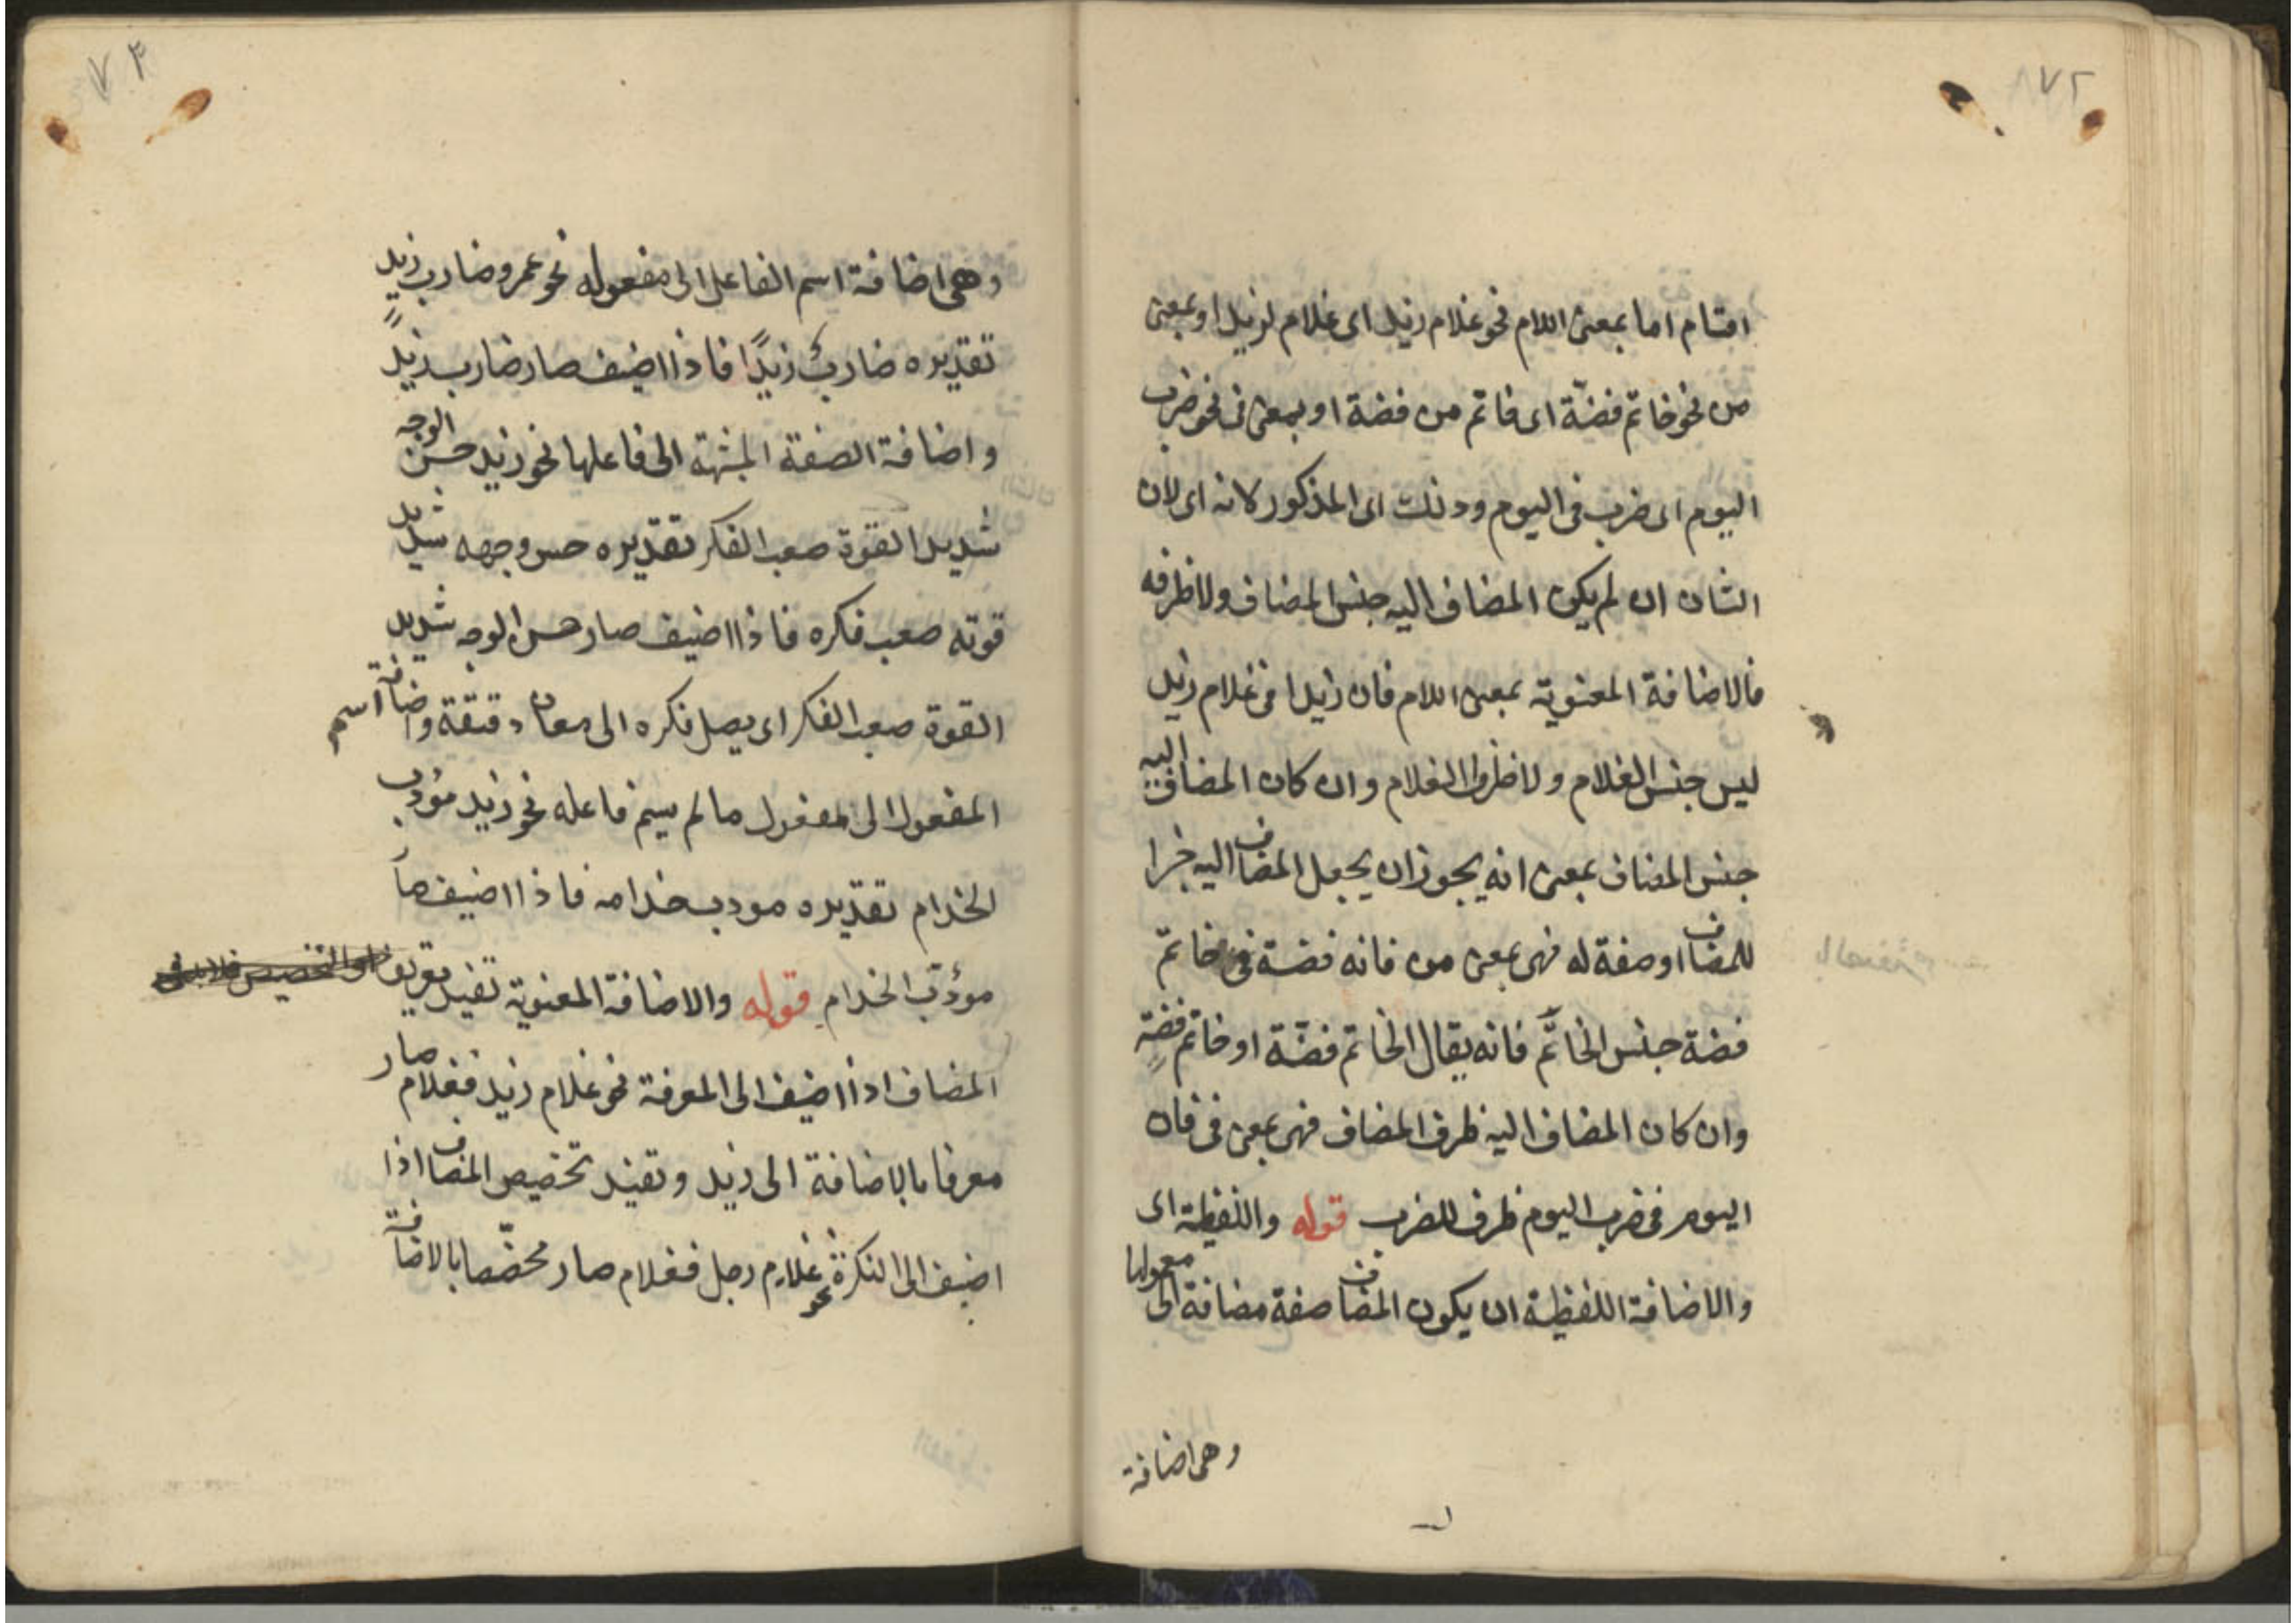 ٧٢
اقسام اما بمعنى اللام نحو غلام زيد اى غلام لزيد او بمعنى
من نحو خاتم فضّة اى خاتم من فضة او بمعنى فى نحو ضرب
اليوم اى ضرب فى اليوم وذلك اى المذكور لانه اى لان
الشان ان لم يكن المضاف اليه جنس المضاف ولا ظرفه
فالاضافة المعنوية بمعنى اللام فان زيدا فى غلام زيد
ليس جنس الغلام ولا ظرف الغلام وان كان المضاف اليه
جنس المضاف بمعنى انه يجوز ان يجعل المضاف اليه خبرا
للمضاف او صفة له فهى بمعنى من فانه فضة فى خاتم
فضة جنس الخاتم فانه يقال الخاتم فضّة او خاتم فضةٍ
وان كان المضاف اليه ظرف المضاف فهى بمعنى فى فان
اليوم فى ضرب اليوم ظرف للضرب قوله واللفظية اى
والاضافة اللفظية ان يكون المضاف صفة مضافة الى معمولها
وهى اضافة
٧٣
وهى اضافة اسم الفاعل الى مفعوله نحو عمرو ضارب زيد
تقديره ضاربٌ زيدًا فاذا اضيف صار ضارب زيدٍ
واضافة الصفة المشبهة الى فاعلها نحو زيد حسن الوجه
شديد القوة صعب الفكر تقديره حسن وجهه شديد
قوته صعب فكره فاذا اضيف صار حسن الوجه شديد
القوة صعب الفكر اى يصل فكره الى معان دقيقة واضافة اسم
المفعول الى مفعول ما لم يسم فاعله نحو زيد مؤدب
الخدام تقديره مودب خدامه فاذا اضيف صار
مؤدب الخدام قوله والاضافة المعنوية تفيد تعريف
المضاف اذا اضيف الى المعرفة نحو غلام زيد فغلام صار
معرفا بالاضافة الى زيد وتفيد تخصيص المضاف اذا
اضيف الى النكرة نحو غلام رجل فغلام صار مخصّصا بالاضافة